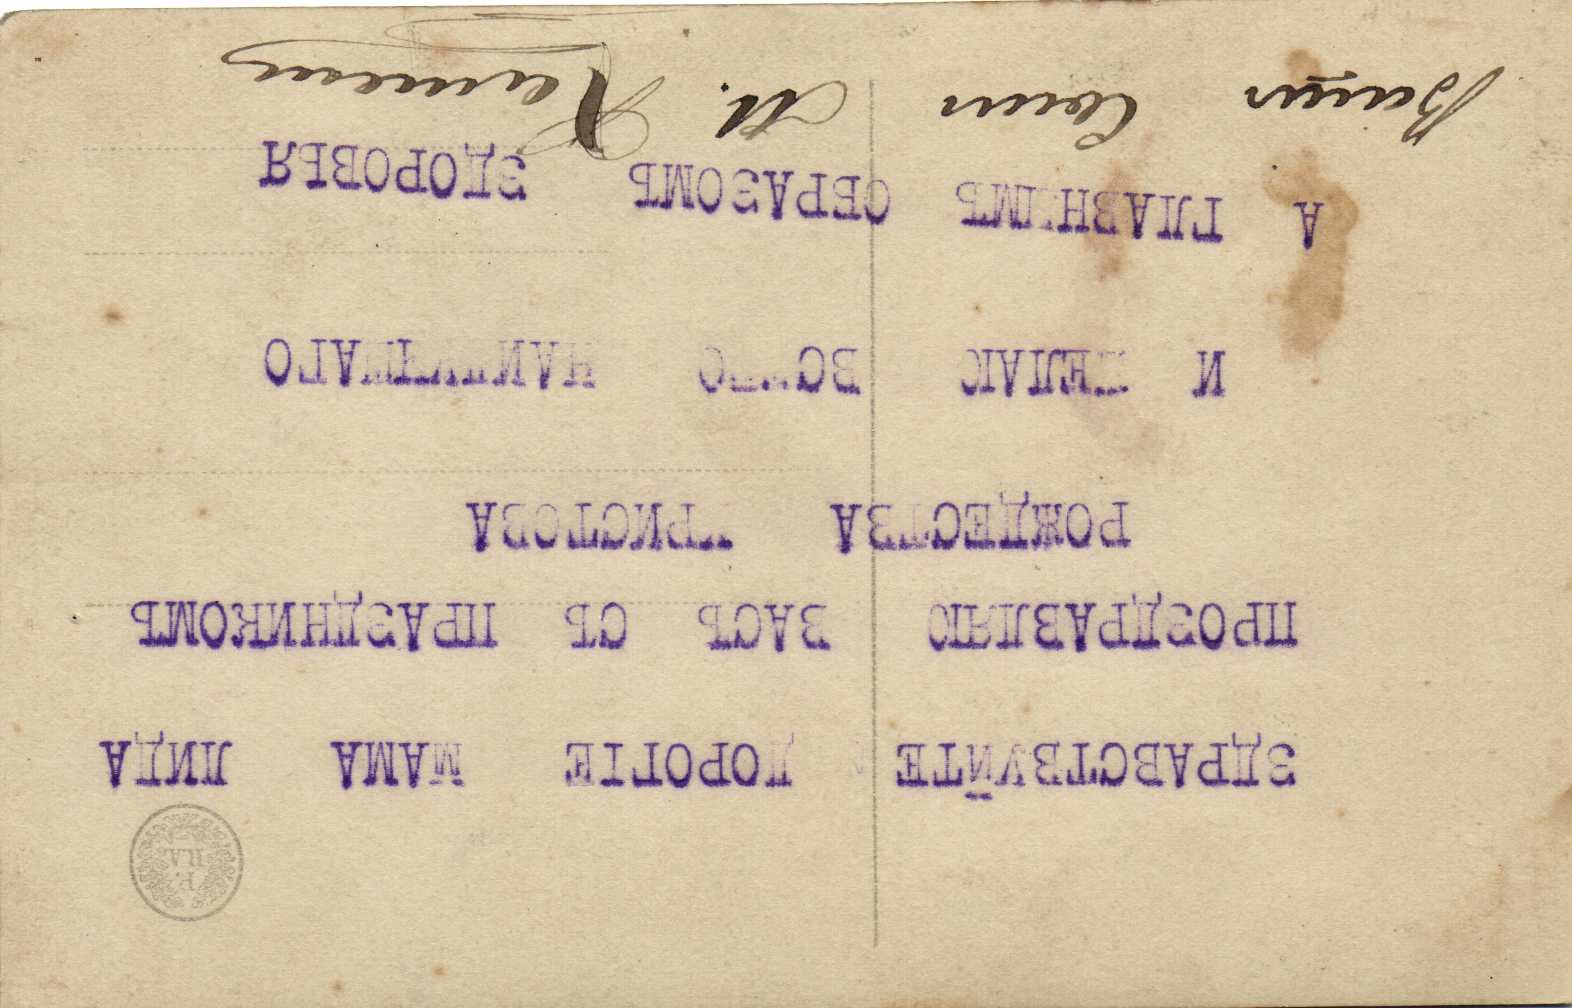 ЗДРАВСТВУЙТЕ ДОРОГIЕ МАМА ЛИДА
ПРОЗДРАВЛЯЮ ВАСЪ СЪ ПРАЗДНИКОМЪ
РОЖДЕСТВА ХРИСТОВА
И ЖЕЛАЮ ВСЕГО НАИЛУЧШАГО
А ГЛАВНИМЪ ОБРАЗОМЪ ЗДОРОВЬЯ
Вашъ Сынъ М.